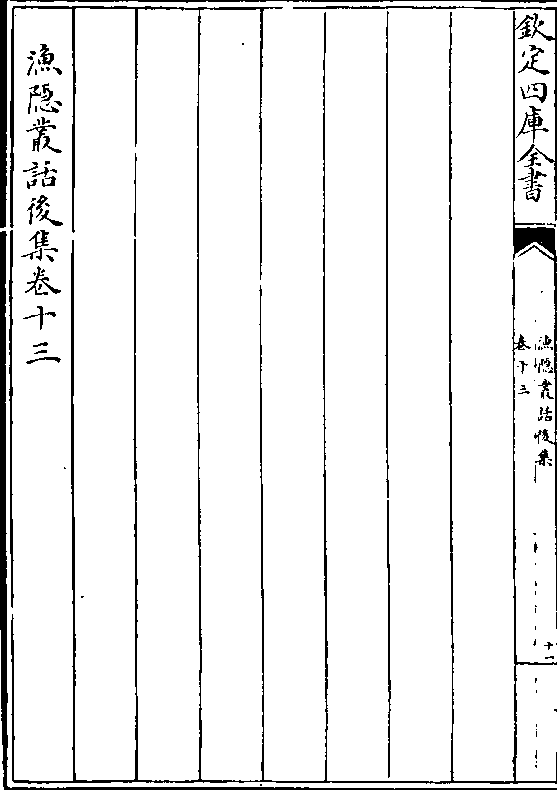 欽定四庫全書
漁隱叢話後集
卷十三
十一
漁隱叢話後集卷十三